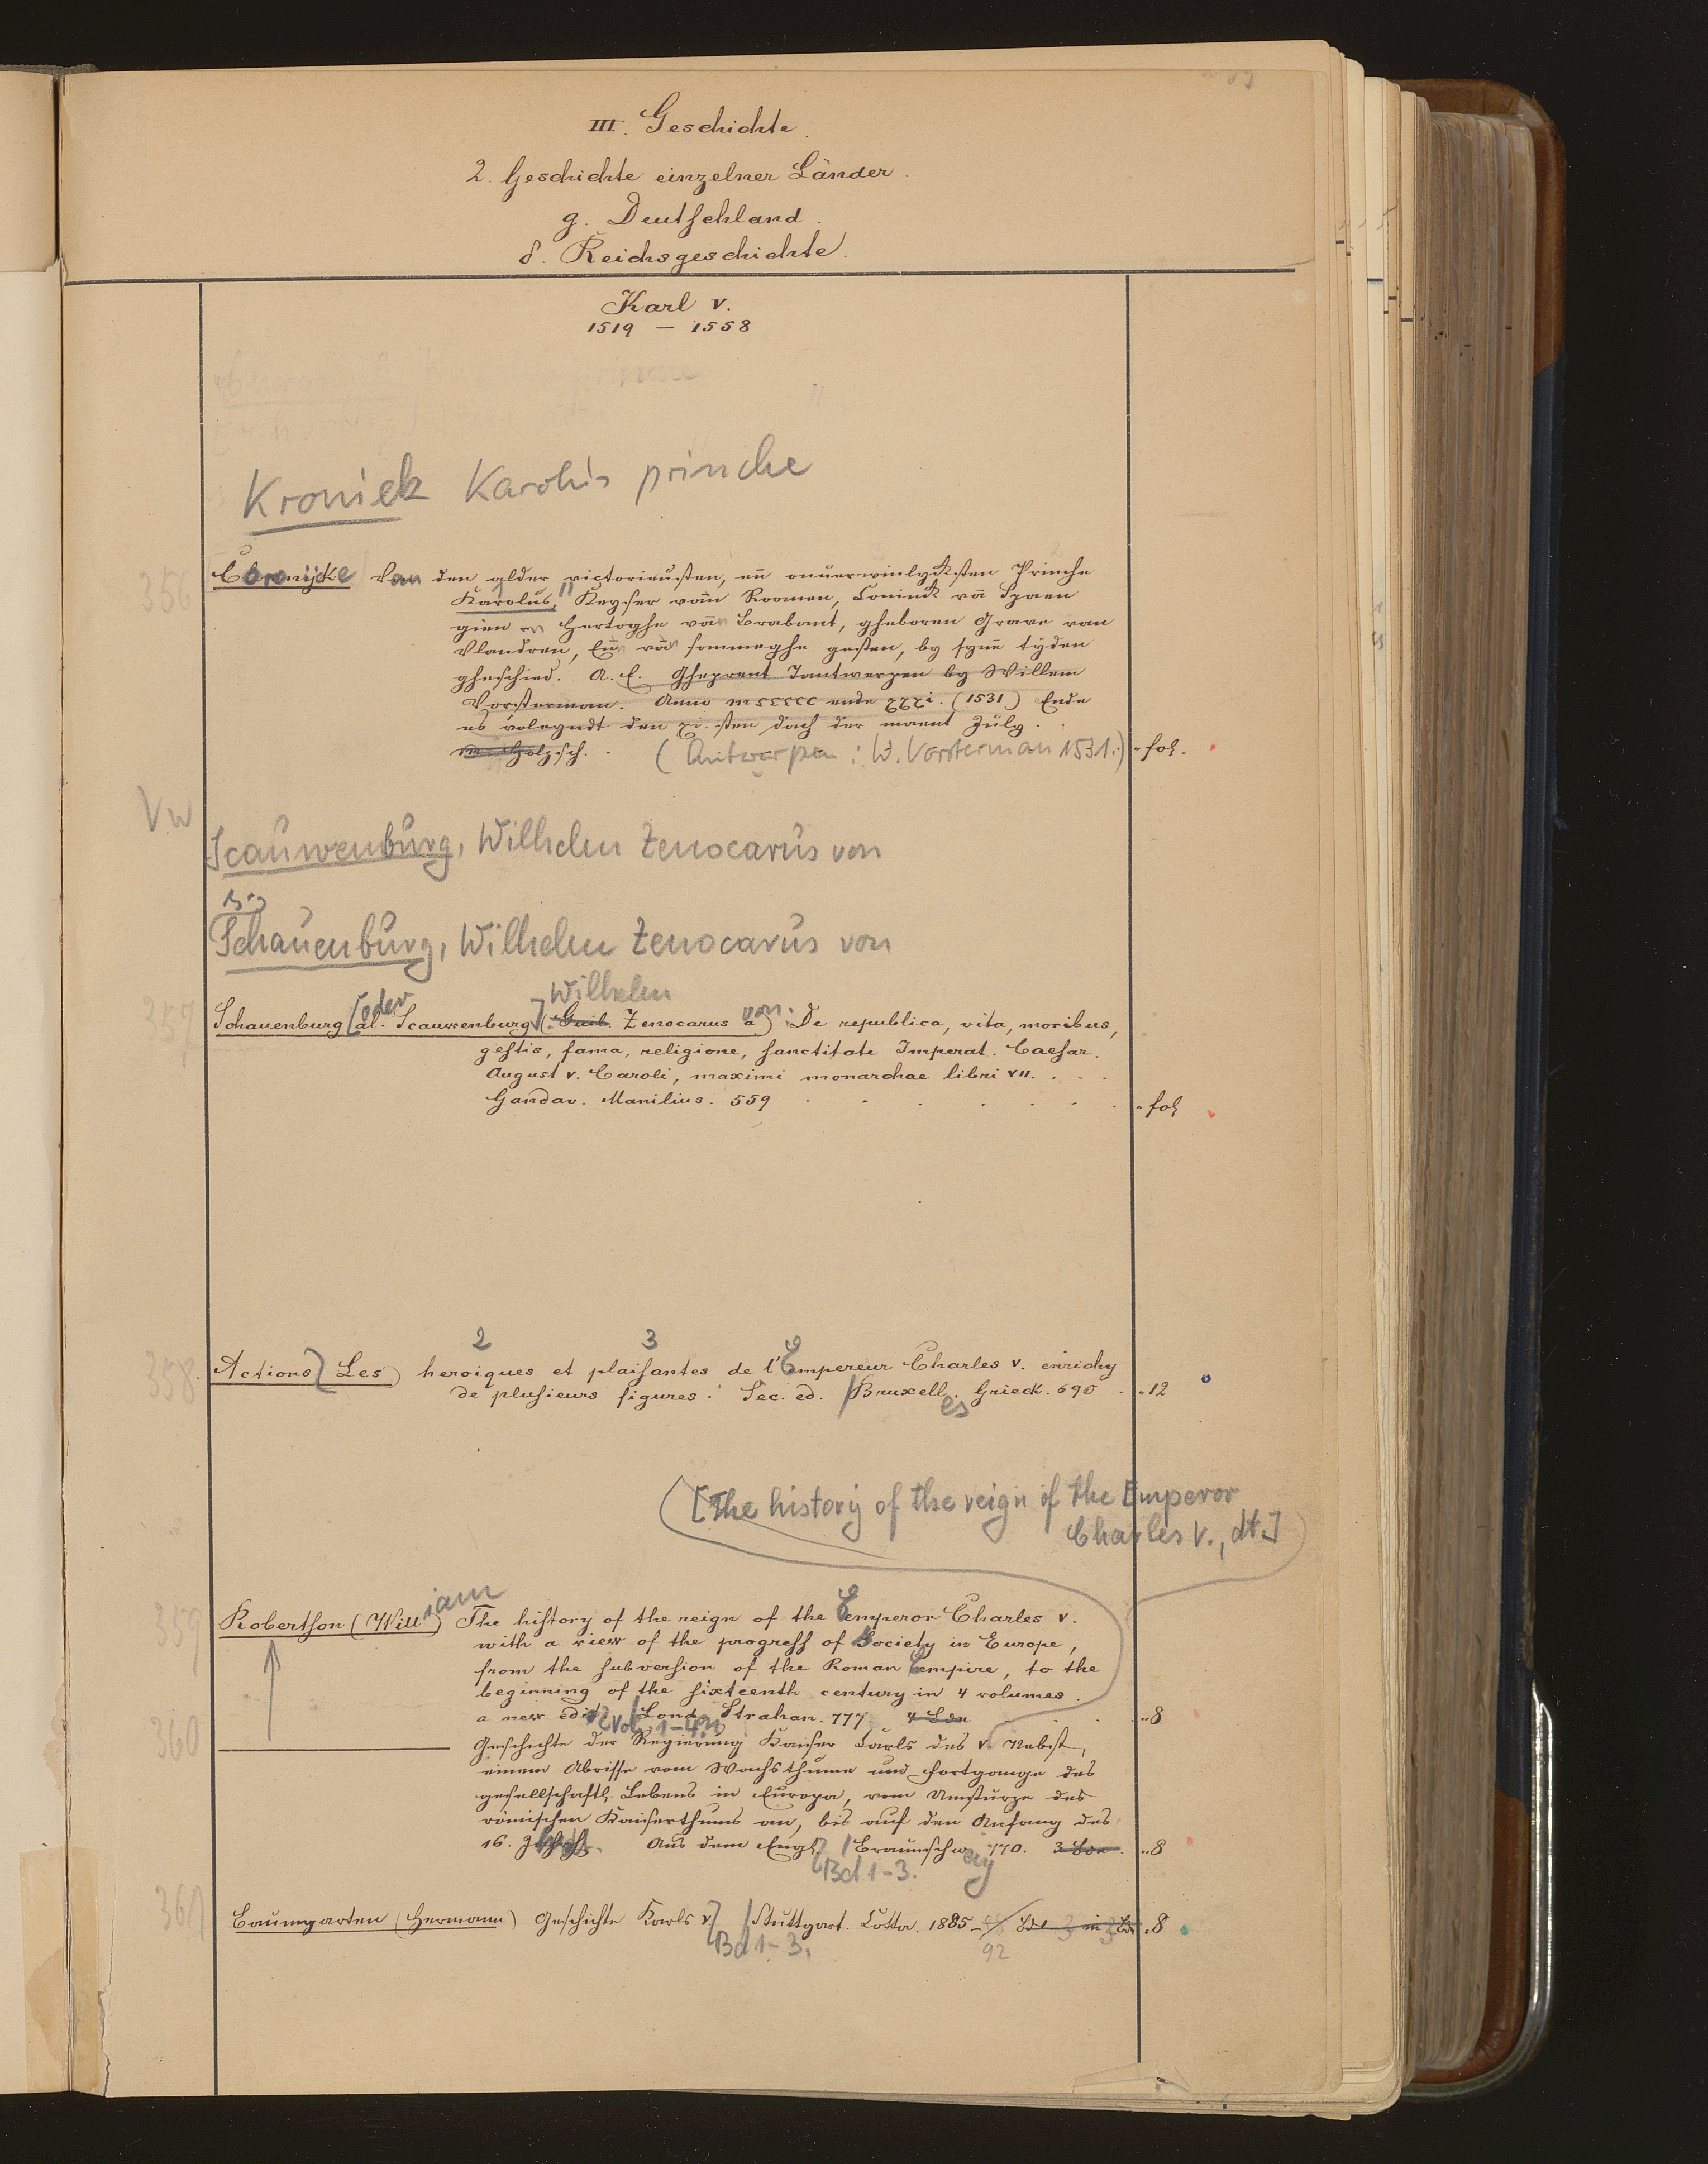 III. Geschichte.
2. Geschichte einzelner Länder.
g. Deutschland.
δ. Reichsgeschichte.
Karl V.
1519 — 1558
Kroniek Karolus princhе
356
Cronijcke Van den alder victorieusten, en̄ onuerwinlycksten Prinche
Karolus, Keyser vān Roomen, Coninck vā Spaen
gien en Hertoghe van Brabant, gheboren Grave van
Vlandren, En̄ vān sommeghe gesten, by syne tyden
gheschied. A. E. Gheprent Tantwerpen by Willem
Vorsterman. Anno mccccc ende xxxi. (1531) Ende
es voleyndt den xi. sten dach der maent July.
m. Holzsch. (Antwerpen: W. Vorsterman 1531.) fol.
Vw
Scauwenburg, Wilhelm Zenocarus von
Schauenburg, Wilhelm Zenocarus von
Wilhelm
357
Schauenburg [oder al. Scauwenburg] (Guil. Zenocarus a) von: De republica, vita, moribus,
gestis, fama, religione, sanctitate Imperat. Caesar.
August V. Caroli, maximi monarchae libri VII.
Gandav. Manilius. 559 fol.
2 3
358.
Actions (Les) heroiques et plaisantes de l'Empereur Charles V. enrichy
de plusieurs figures. Sec. ed. / Bruxell. Grieck. 690 12
es
[The history of the reign of the Emperor
Charles V., dt.]
359
Robertson (William) The history of the reign of the Emperor Charles V.
with a view of the progress of Society in Europe,
from the subversion of the Roman Empire, to the
beginning of the sixteenth century in 4 volumes.
a new edit. / Lond. Strahan. 777. 4 Bde 8
Vol. 1-4.
360
Geschichte der Regierung Kaiser Carls des V. Nebst
einem Abrisse vom Wachsthume und Fortgange des
gesellschaftl. Lebens in Europa, vom Umsturze des
römischen Kaiserthums an, bis auf den Anfang des
16. Jhrh. Aus dem Engl. / Braunschw. 770. 3 Bde. 8
Bd 1-3. eig
361
Baumgarten (Hermann) Geschichte Karls V. / Stuttgart. Cotta. 1885- Bde in 3 Bde 8
Bd 1-3. 92